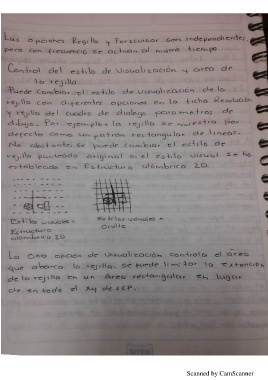 Las opciones Rejilla y Forzcursor son independientes,
pero con frecuencia se activan al mismo tiempo
Control del estilo de visualización y área de
la rejilla
Puede cambiar el estilo de visualización de la
rejilla con diferentes opciones en la ficha Resolución
y rejilla del cuadro de dialogo parametros de
dibujo. Por ejemplo: la rejilla se muestra por
defecto como un patrón rectangular de lineas.
No obstante, se puede cambiar el estilo de
rejilla punteado original si el estilo visual se ha
establecido en Estructura alámbrica 2D.
Estilo visual =
Estructura
alámbrica 2D
Estilos visuales =
Oculto
La otra opción de visualización controla el área
que abarca la rejilla. se puede limitar la extensión
de la rejilla en un área rectangular en lugar
de en todo el XY de SCP.
Scanned by CamScanner